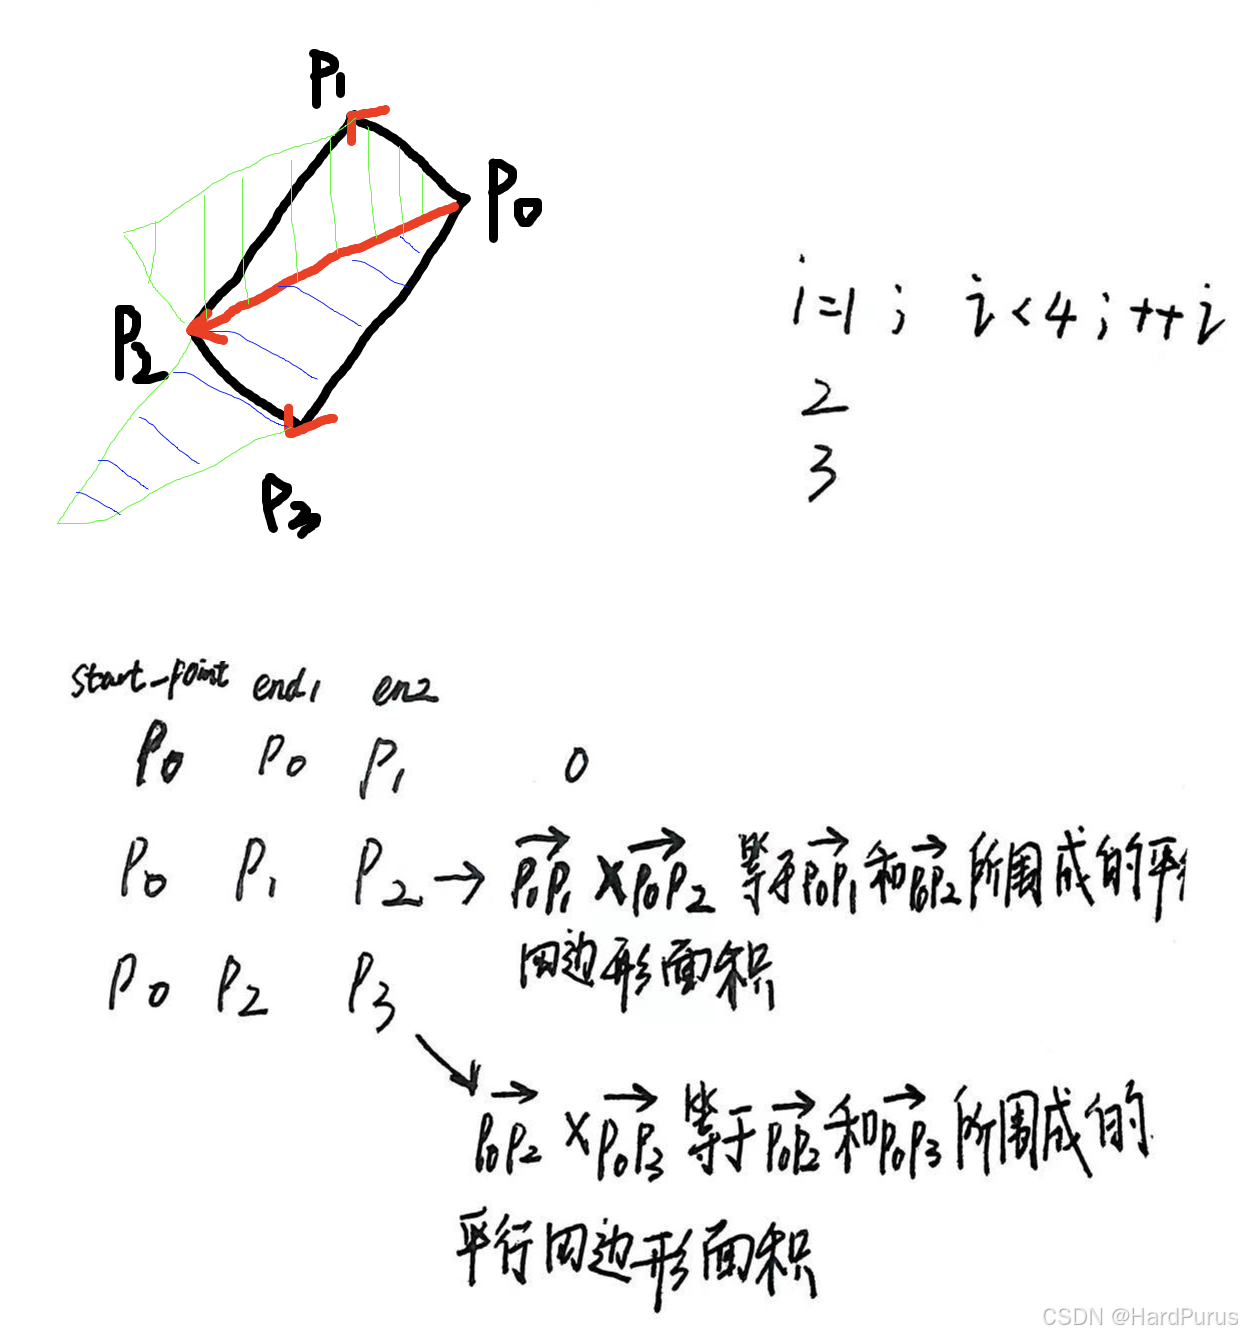 P1
P0
P2
P3
i=1 ; i<4 ; ++i
2
3
start_point end1 en2
P0 P0 P1 0
P0 P1 P2 → P0P1 × P0P2 等于P0P1和P0P2所围成的平行
四边形面积
P0 P2 P3
P0P2 × P0P3 等于P0P2和P0P3所围成的
平行四边形面积
CSDN @HardPurus